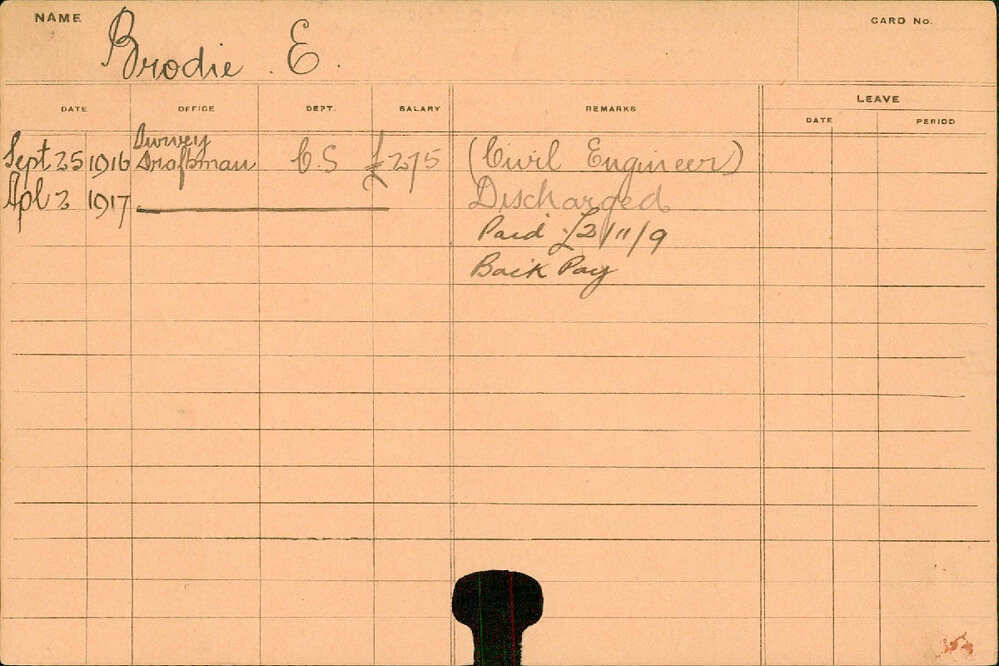 NAME
CARD No.
Brodie E.
DATE OFFICE DEPT. SALARY REMARKS LEAVE
DATE PERIOD
Survey
Sept 25 1916 Draftsman C.S £275 (Civil Engineer)
Apl 2 1917 Discharged
Paid £2/11/9
Back Pay